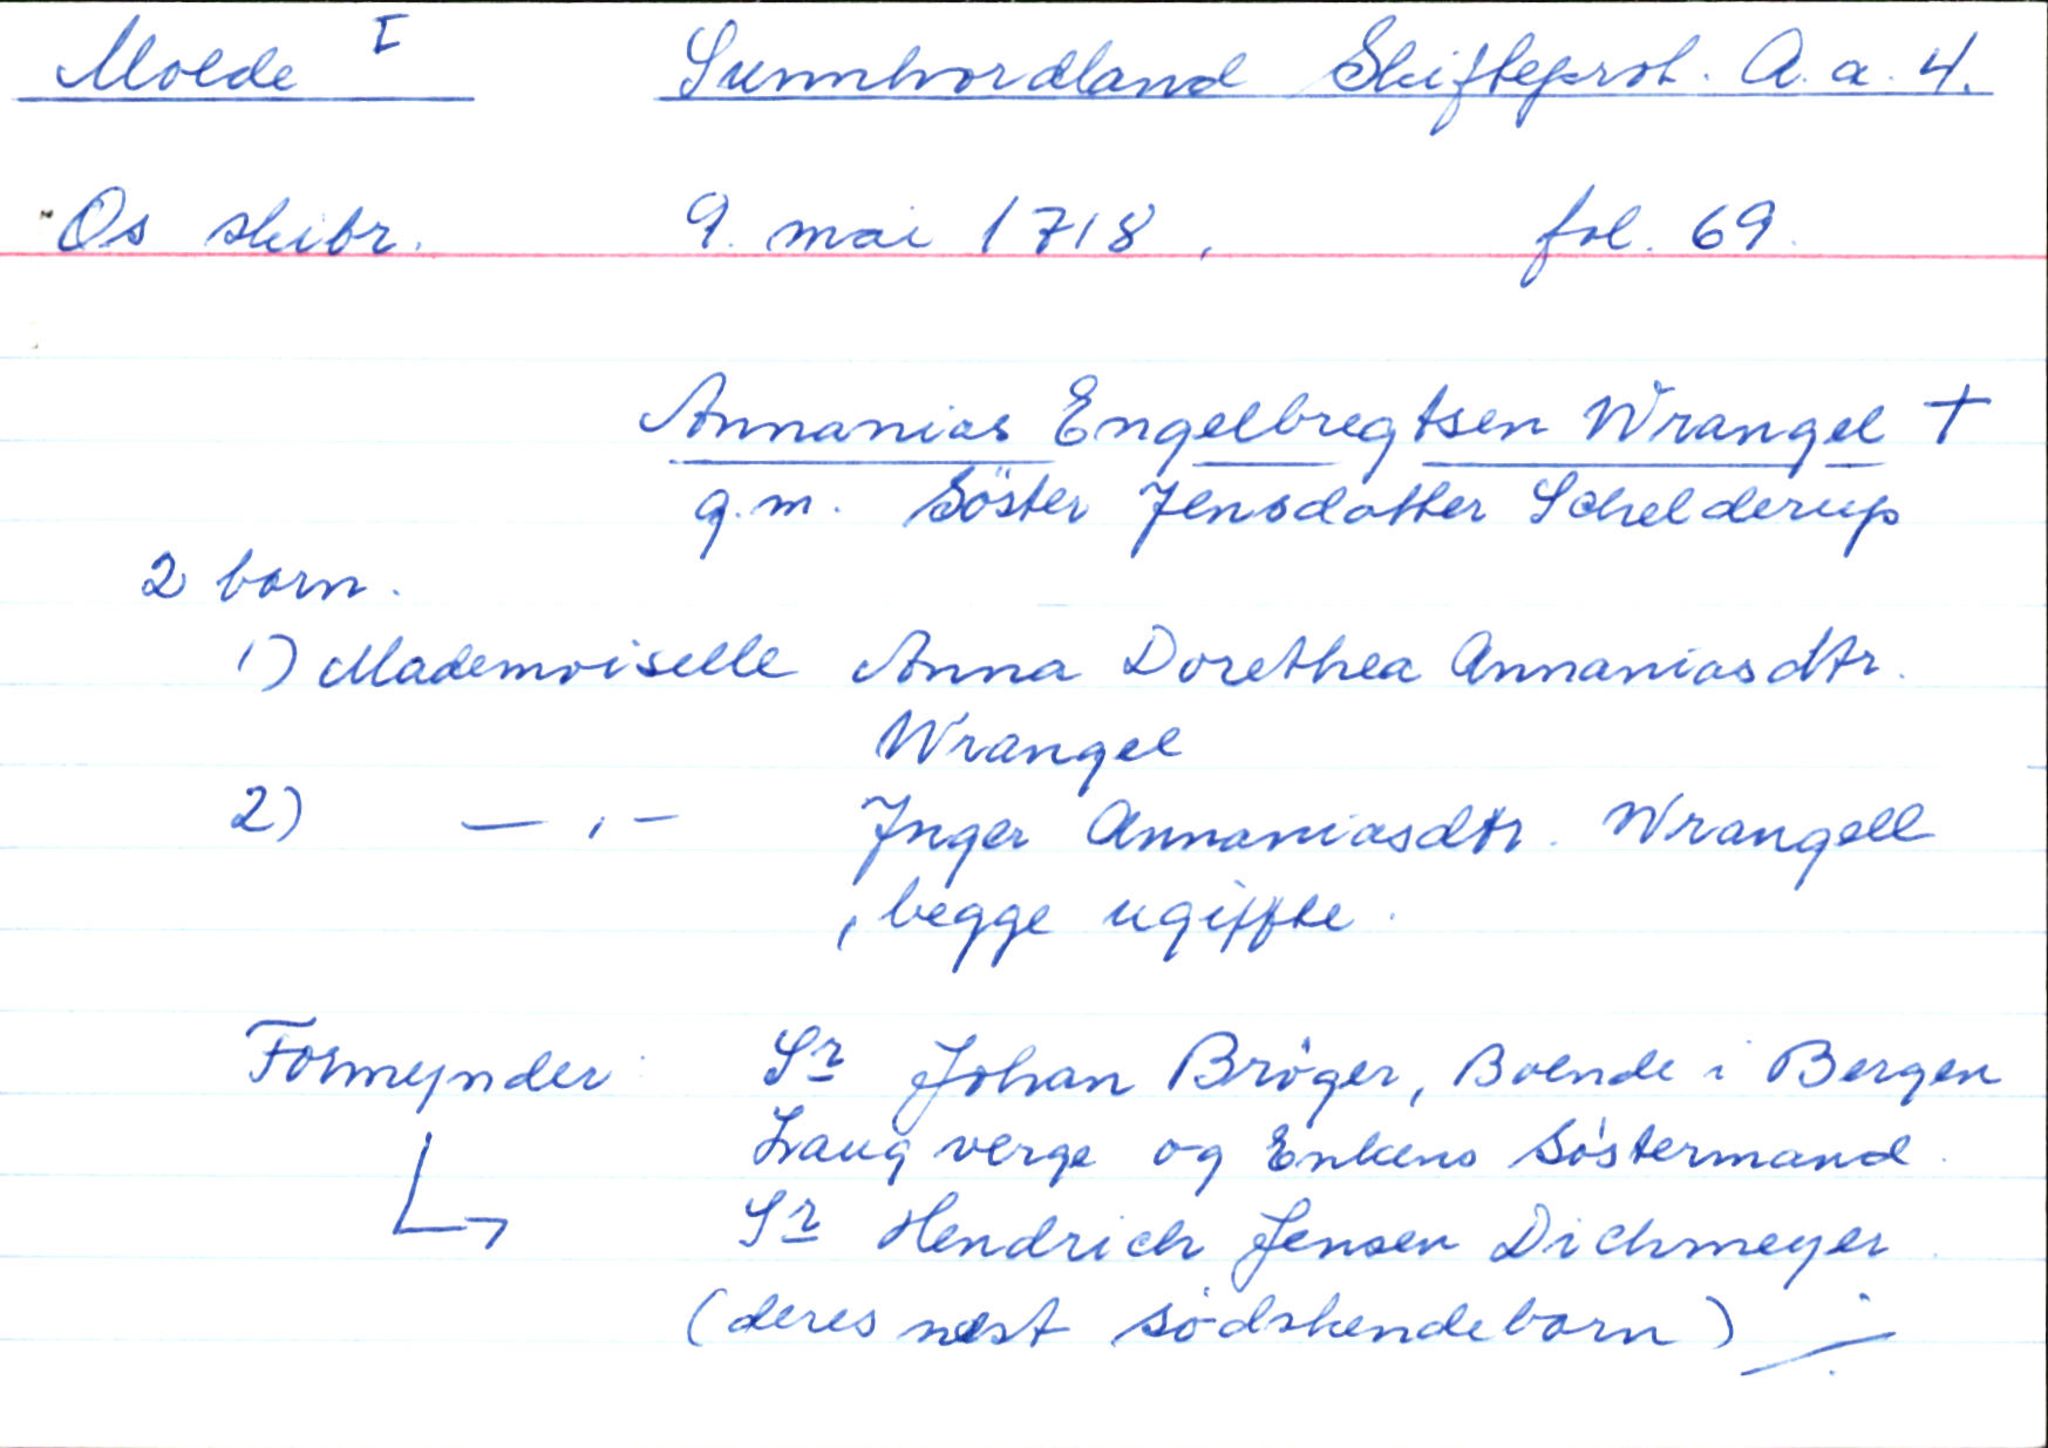 Molde I Sunnhordland Skifteprot. A. a. 4.
Os skibr. 9. mai 1718, fol. 69.
Annanias Engelbregtsen Wrangel †
g. m. Söster Jensdatter Schelderup
2 born.
1) Mademoiselle Anna Dorethea Annaniasdtr.
Wrangel
2) — , — Inger Annaniasdtr. Wrangell
, begge ugiffte.
Formynder: Sr Johan Bröger, Boende i Bergen
Laug verge og Enkens Söstermand.
Sr Hendrich Jensen Dichmeyer.
(deres næst södskendeborn) ./.